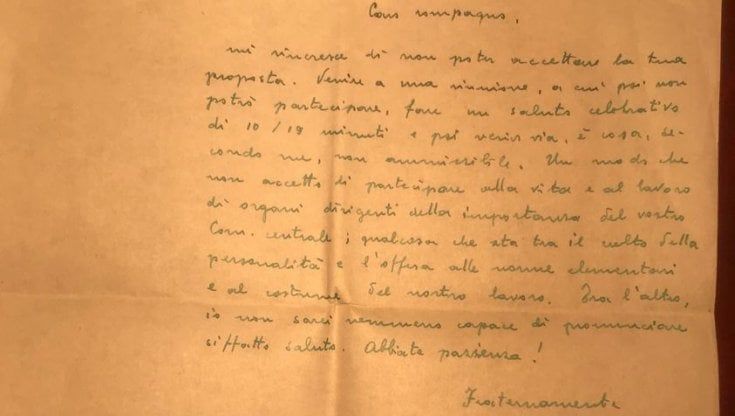 Caro compagno,
mi rincresce di non poter accettare la tua
proposta. Venire a una riunione, a cui poi non
potrò partecipare, fare un saluto celebrativo
di 10/15 minuti e poi venir via, è cosa, se-
condo me, non ammissibile. Un modo che
non accetto di partecipare alla vita e al lavoro
di organi dirigenti della importanza del vostro
Com. centrale; qualcosa che sta tra il culto della
personalità e l'offesa alle norme elementari
e al costume del nostro lavoro. Tra l'altro,
io non sarei nemmeno capace di pronunciare
siffatto saluto. Abbiate pazienza!
Fraternamente